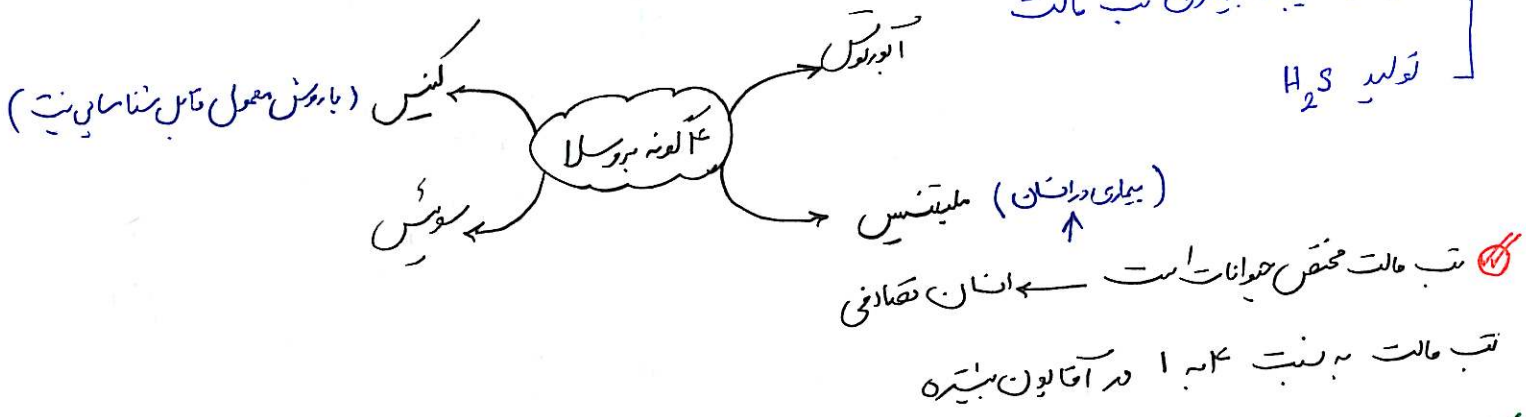 تب مالت
تولید H₂S
آبورتوس
کنیس (با روش معمول قابل شناسایی نیست)
۴ گونه بروسلا
سوئیس
ملیتنسیس (بیماری در انسان)
تب مالت مختص حیوانات است ← انسان تصادفی
تب مالت به نسبت ۴ به ۱ در آقایون بیشتره